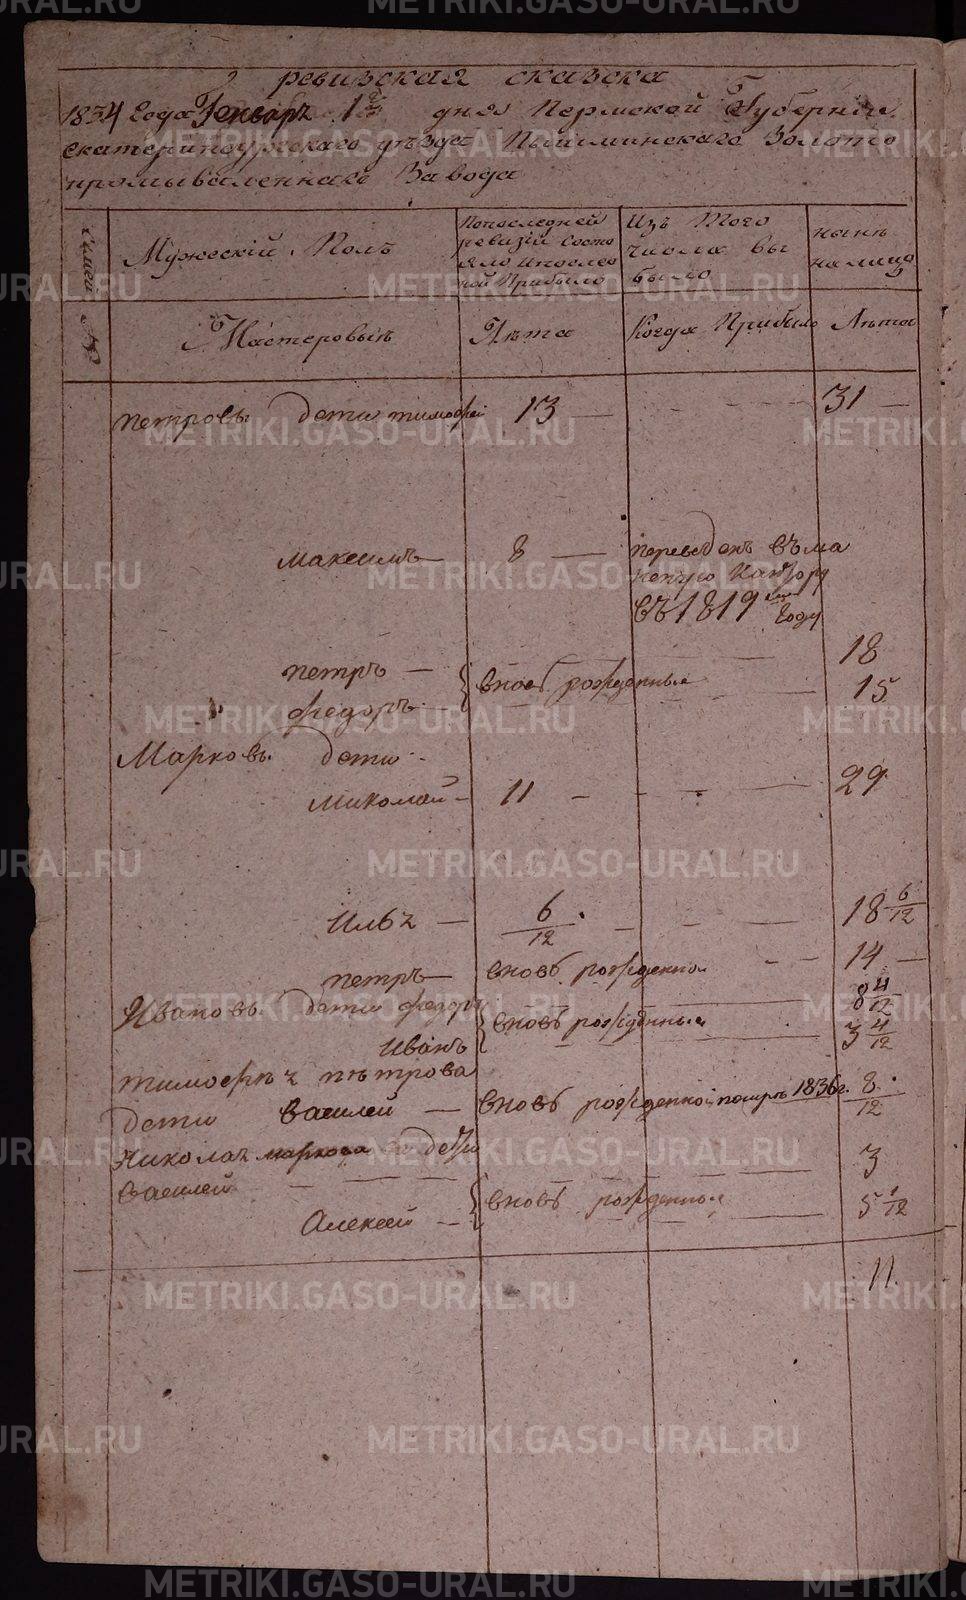 ревизская сказска
1834 Года Генваря 1 дня Пермской Губернии
Екатеринбургскаго уезда Пышминскаго Золото
промываленнаго Завода
Мужескій Полъ
Попоследней ревизіи Состо яло Ипослео ной Прибыло
Изъ Того числа вы было
нынѣ налицо
Мастеровыѣ
Лѣта
Когда Прибыло
Лѣта
петровы дети тимофей 13 — 31 —
максимъ — 8 — переведенъ въ
Кантору
въ 1819 году
петръ — вновь рожденныя 18
федоръ 15
Марковъ дети
Миколай — 11 — 29
Илья — 6/12 — 18 6/12
петръ — вновь рожденной — 14 —
Ивановъ дети федоръ вновь рожденныя 8 4/12
Иванъ 3 4/12
тимофѣя пѣтрова
дети Василей — вновь рожденной померъ 1836 г. 8/12
Николая маркова дети
Василей — вновь рожденныя 3
Алексей — 5 1/12
11
METRIKI.GASO-URAL.RU